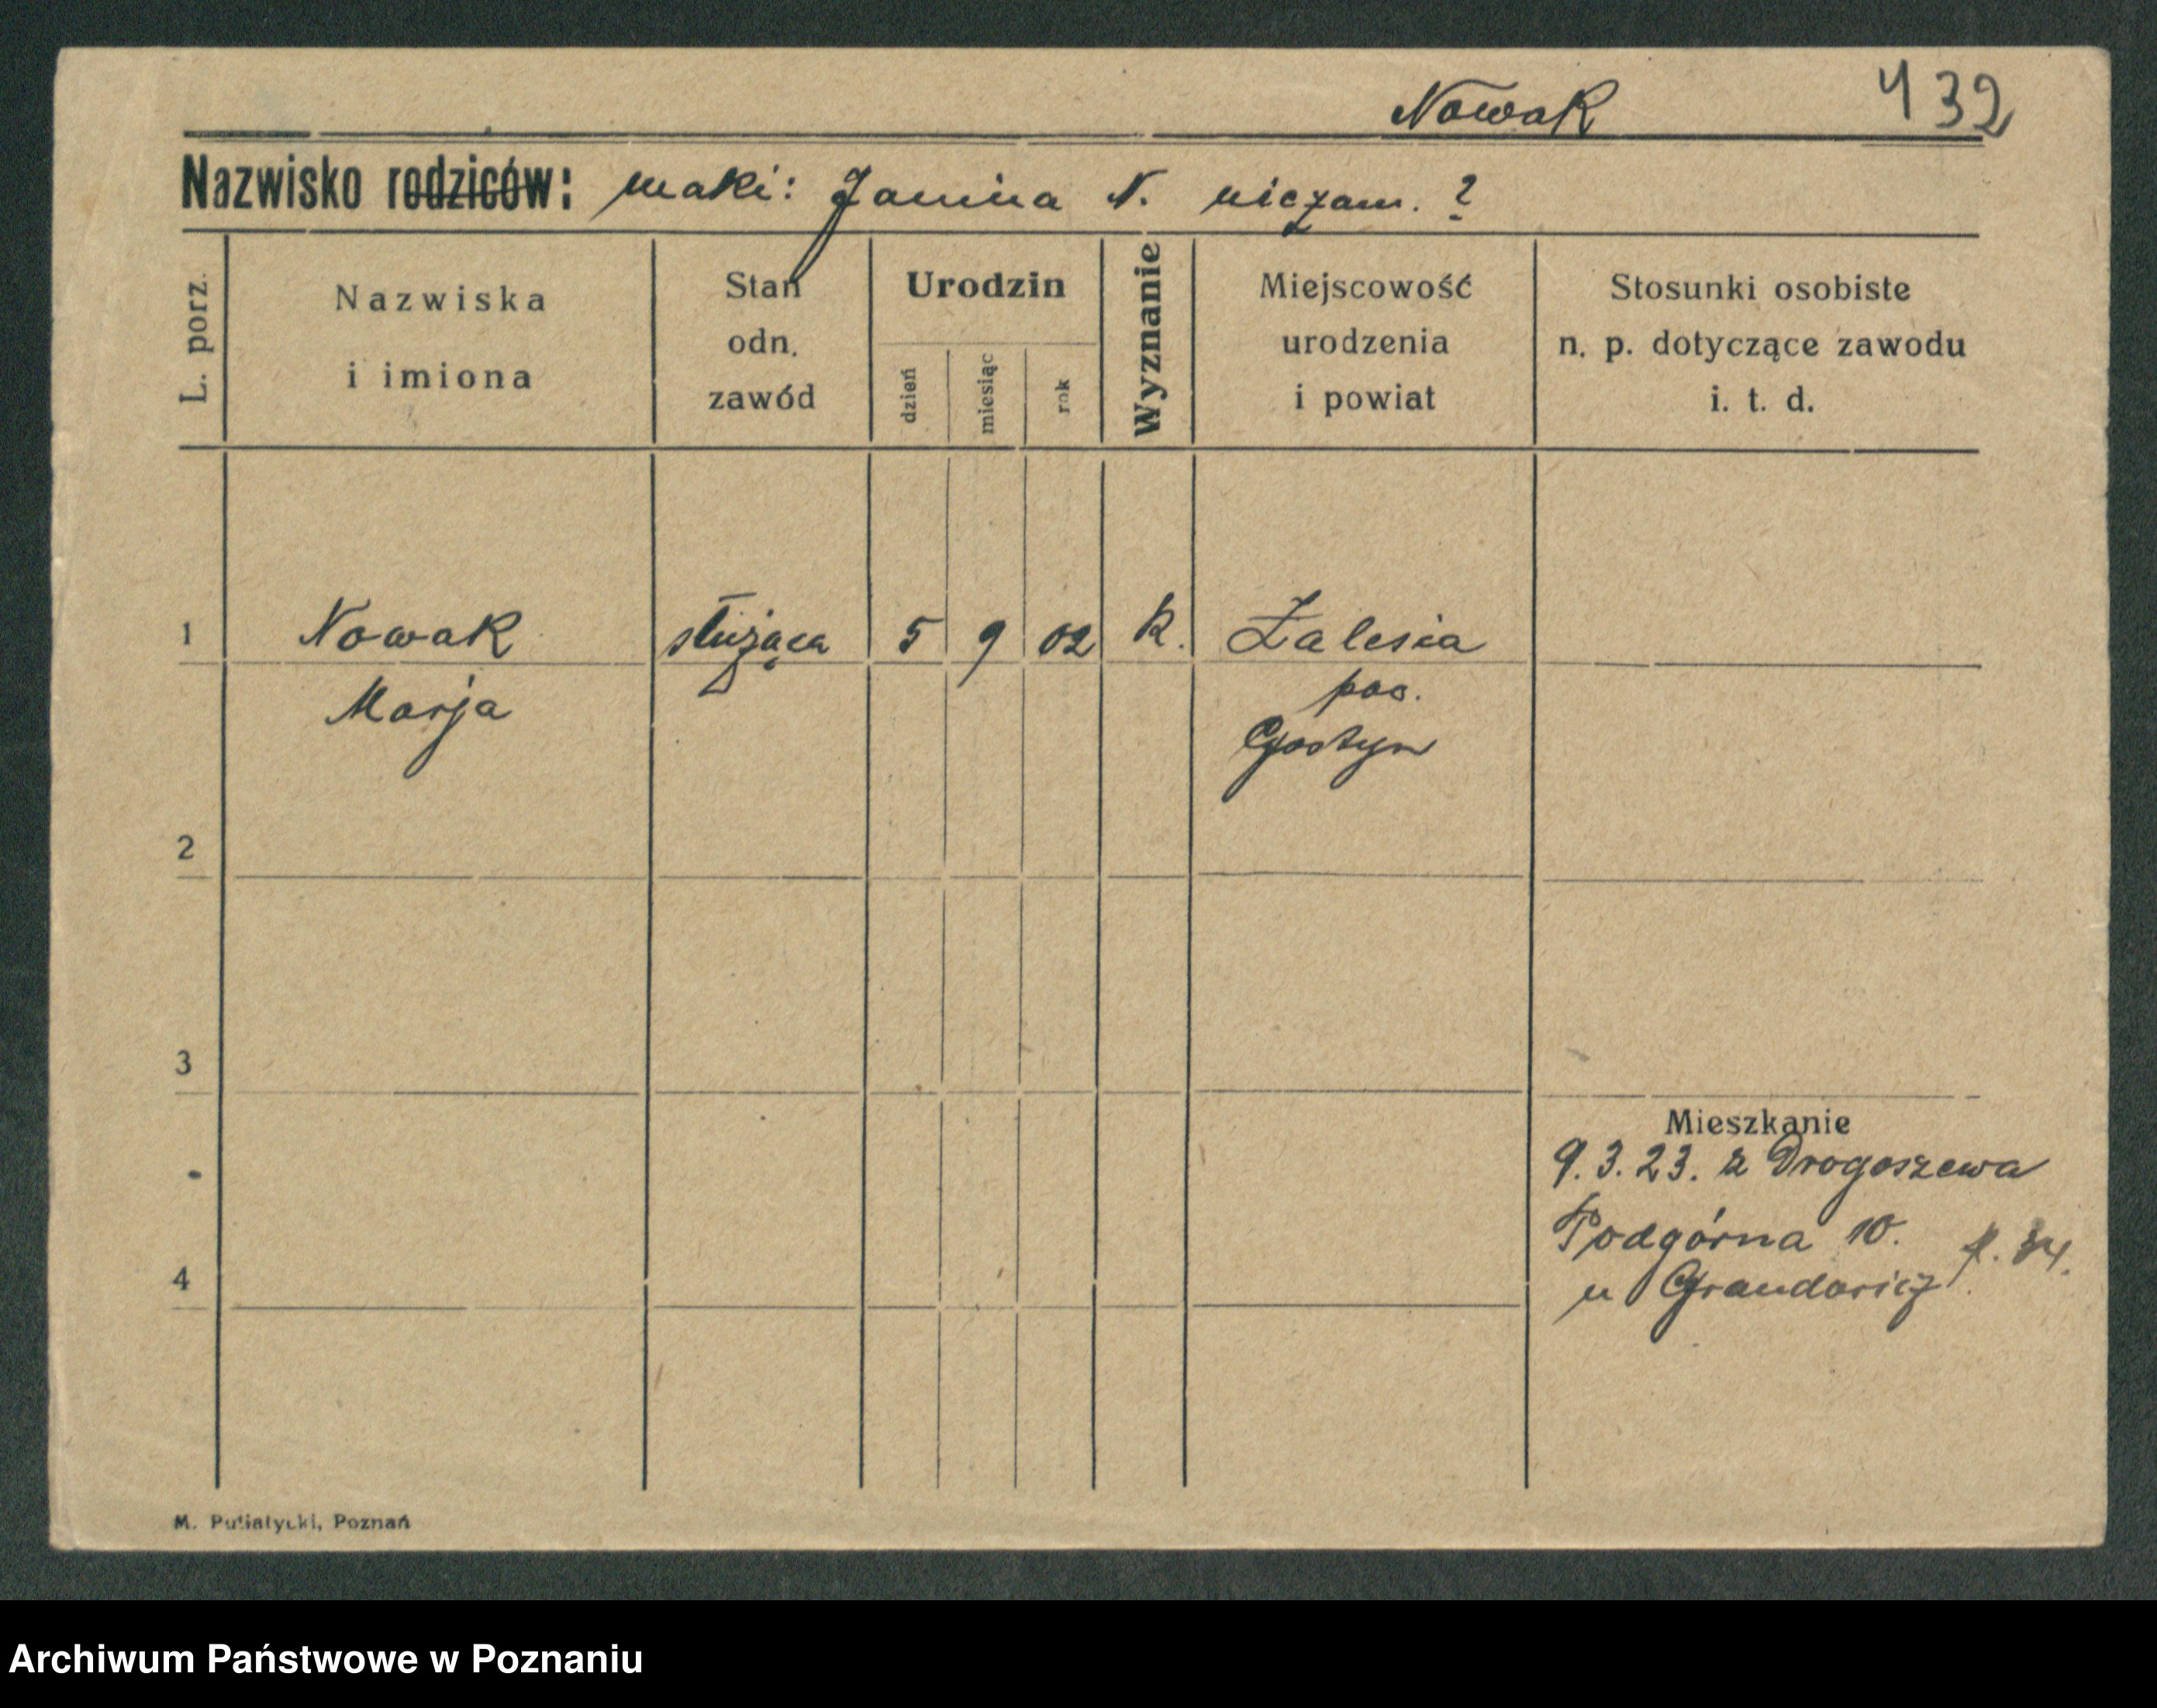 Nowak 432
Nazwisko rodziców: matki: Janina N. niezam. ?
L. porz.
Nazwiska
i imiona
Stan
odn.
zawód
Urodzin
dzień
miesiąc
rok
Wyznanie
Miejscowość
urodzenia
i powiat
Stosunki osobiste
n. p. dotyczące zawodu
i. t. d.
1 Nowak służąca 5 9 02 k. Zalesia
Marja pow.
Gostyn
2
3
Mieszkanie
9.3.23. z Drogoszewa
Podgórna 10.
4
u
M. Putiatycki, Poznań
Archiwum Państwowe w Poznaniu